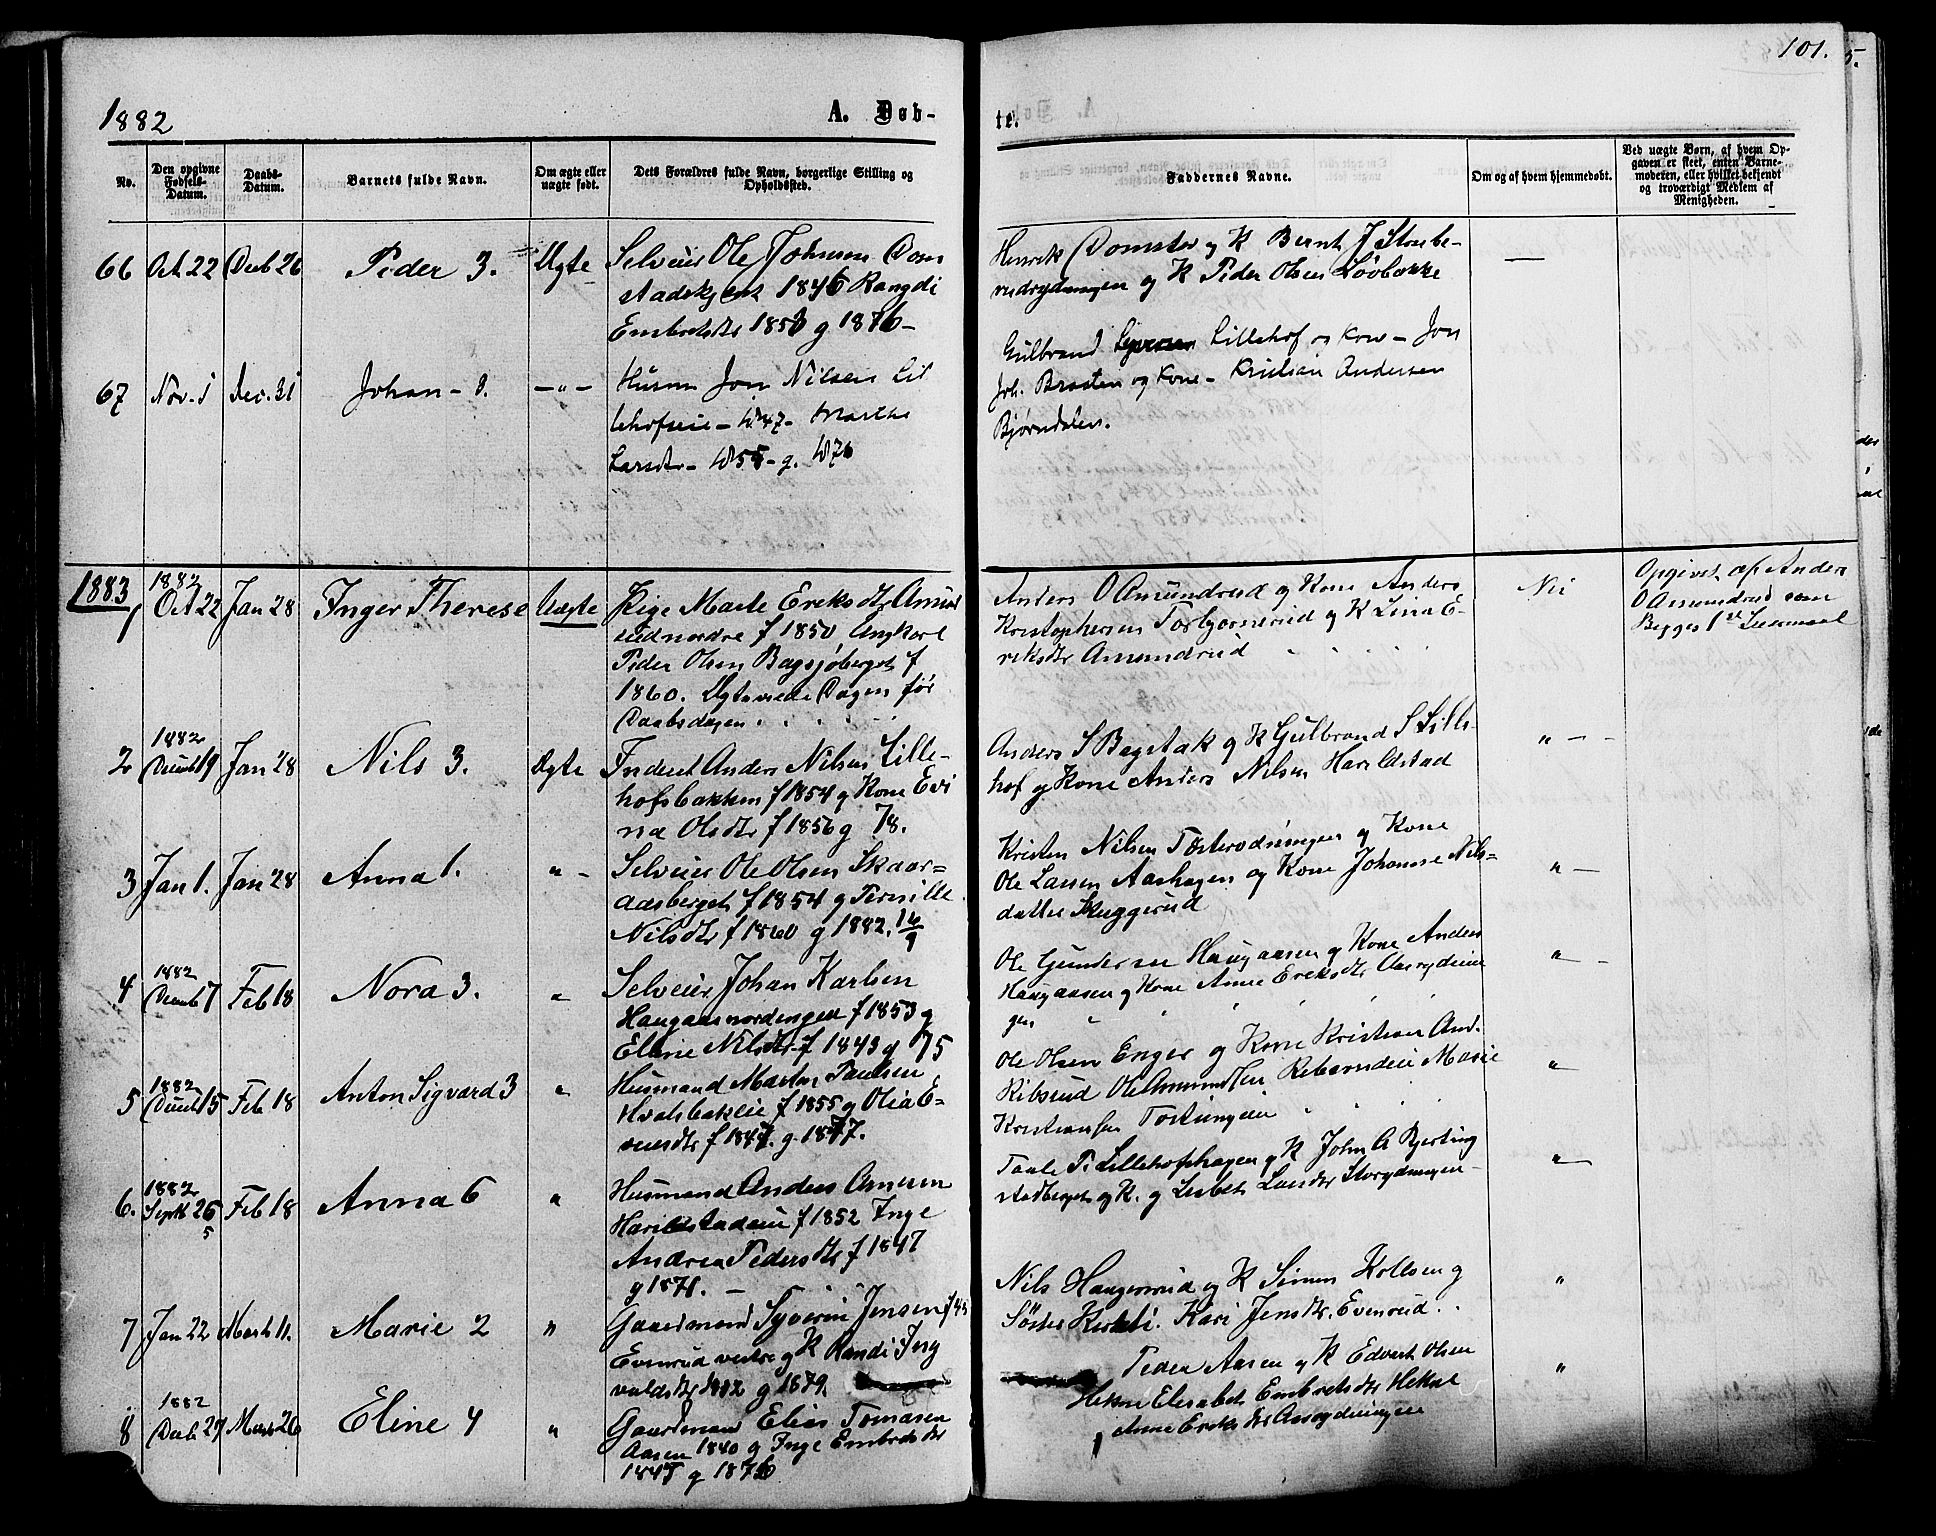 101.
1882
A. Døb-
te.
No.
Den opgivne Fødsels-Datum.
Daabs-Datum.
Barnets fulde Navn.
Om ægte eller uægte født.
Dets Forældres fulde Navn, borgerlige Stilling og Opholdssted.
Faddernes Navne.
Om og af hvem hjemmedøbt.
Ved uægte Børn, af hvem Opgaven er skeet, enten Barnemoderen, eller hvilket bekjendt og troværdigt Medlem af Menigheden.
66 Oct. 22 Decb 26 Peder 3. Ægte Selveier Ole Johnsen Dom
stadekjernet 1846 Rangdi
Embretsdtr 1853 g 1876-
Henrik Domster og K Bernt J Strube-
rudrydningen og K Peder Olsen Løvbakke
—
67 Nov. 1 Dec. 31 Johan - 8. -"- Husm Jon Nilsen Lil
lehofseie - 1847 - Marthe
Larsdtr - 1855 - g. 1876
Gulbrand Lillehof og Kone - Jon
Joh. Braaten og Kone - Kristian Andersen
Bjørndalen.
1883
1 1882 Oct 22 Jan 28 Inger Therese Uægte Pige Marte Eriksdtr Amund
rud nordre f 1850 Ungkarl
Peder Olsen Bagsjøberget f
1860. Ægteviede Dagen før
Daabsdagen
Anders O Amundrud og Kone Anders
Kristophersen Torbjørnerud og K Lina E-
riksdtr Amundrud
Nei
Opgivet af Anders
O Amundrud som
Begges 1ste Leiermaal
2 1882 Decmb 19 Jan 28 Nils 3. Ægte Inderst Anders Nilsen Lille-
hofsbakken f 1854 g Kone Evi
na Olsdtr f 1856 g 78.
Anders S Bagstak og K Gulbrand S Lille-
hof og Kone Anders Nilsen Harildstad
" - -
3 Jan 1. Jan 28 Anna 1. " - Selveier Ole Olsen Skaar-
aasberget f 1854 g Pernille
Nilsdtr f 1860 g 1882. 16/9
Kristen Nilsen og Kone
Ole Larsen Aashagen og Kone Johanne Nils-
datter Skuggerud
" -
4 1882 Decmb 7 Feb 18 Nora 3. " Selveier Johan Karlsen
f 1853 g
Eline Nilsdtr f 1843 g 75
Ole Gundersen Haugaasen og Kone Anders
Haugaasen og Kone Anne Eriksdtr Aasrydnin
gen
" -
5 1882 Decmb 15 Feb 18 Anton Sigvard 3 " Husmand Marton Paulsen
Kvalsbakeie f 1855 g Olea E-
vensdtr f 1847. g. 1877.
Ole Olsen Enger og Kone Kristian And.
Ribsrud Ole Amundsen Marie
Kristiansen
"
6. 1882 Septb 26 5 Feb 18 Anna 6 " Husmand Anders Amunsen
Harildstadeie f 1852 Inge
Andrea Pedersdtr f 1847
g 1871. -
Paule P. Lillehofshagen og K John A Bjerting
stadberget og K. og Lisbet Larsdtr Storrydningen
"
7 Jan 22 Marts 11. Marie 2 " Gaardmand Syverin Jensen f 45
Evenrud vestre g K Randi Ing
valdsdtr 1852 g 1879.
Nils Haugerud og K Simen Kolbsen g
Søster Kirsti. Kari Jensdtr. Evenrud.
"
8 1882 Decb 29 Marts 26 Eline 4 " Gaardmand Elias Tomasen
Aasen 1840 g Inge Embretsdtr
1847 g 1876
Peder Aasen og K Edvart Olsen
Hekne Elisabet Embretsdtr Hekne
Anne Eriksdtr Aasrydningen
"